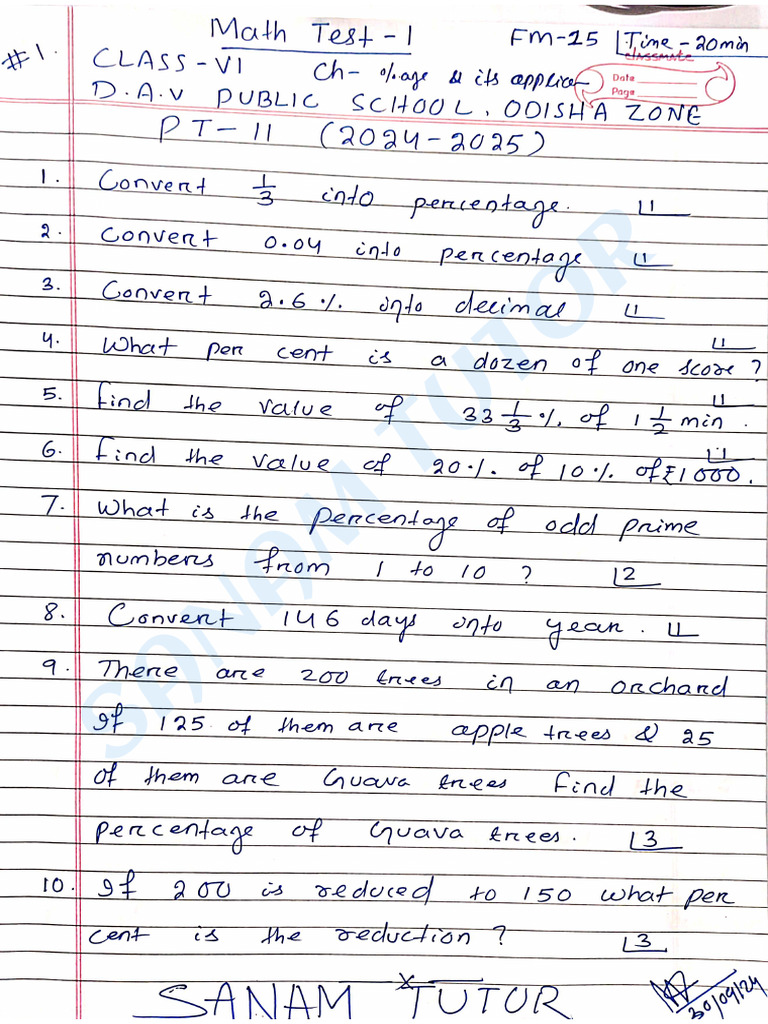 Math Test - 1 FM-15 Time - 20min
#1.
CLASS - VI Ch- %age & its applica-
classmate
Date
Page
D.A.V PUBLIC SCHOOL, ODISHA ZONE
PT-II (2024-2025)
1. Convert 1/3 into percentage. 1
2. Convert 0.04 into percentage 1
3. Convert 2.6% into decimal 1
4. What per cent is a dozen of one score? 1
5. Find the value of 33 1/3 % of 1 1/2 min. 1
6. Find the value of 20% of 10% of ₹1000. 1
7. What is the percentage of odd prime
numbers from 1 to 10 ? 2
8. Convert 146 days into year. 1
9. There are 200 trees in an orchard
If 125 of them are apple trees & 25
of them are Guava trees Find the
percentage of Guava trees. 3
10. If 200 is reduced to 150 what per
cent is the reduction ? 3
SANAM TUTOR
30/09/24
SANAM TUTOR